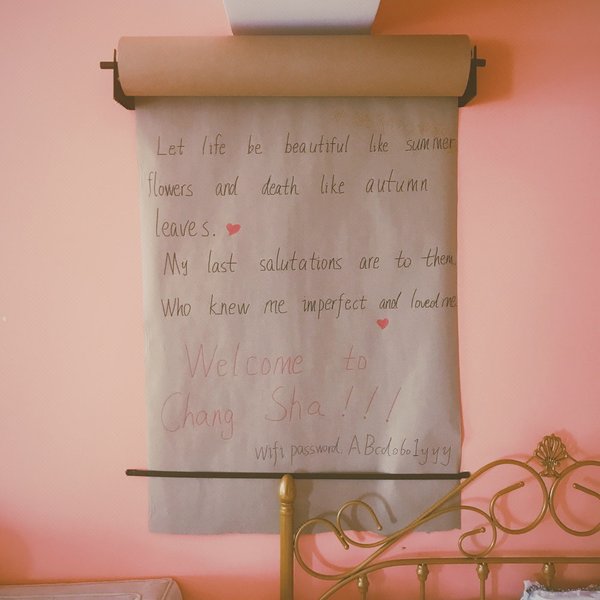 Let life be beautiful like summer
flowers and death like autumn
leaves.
My last salutations are to them
Who knew me imperfect and loved me
Welcome to
Chang Sha!!!
Wifi password